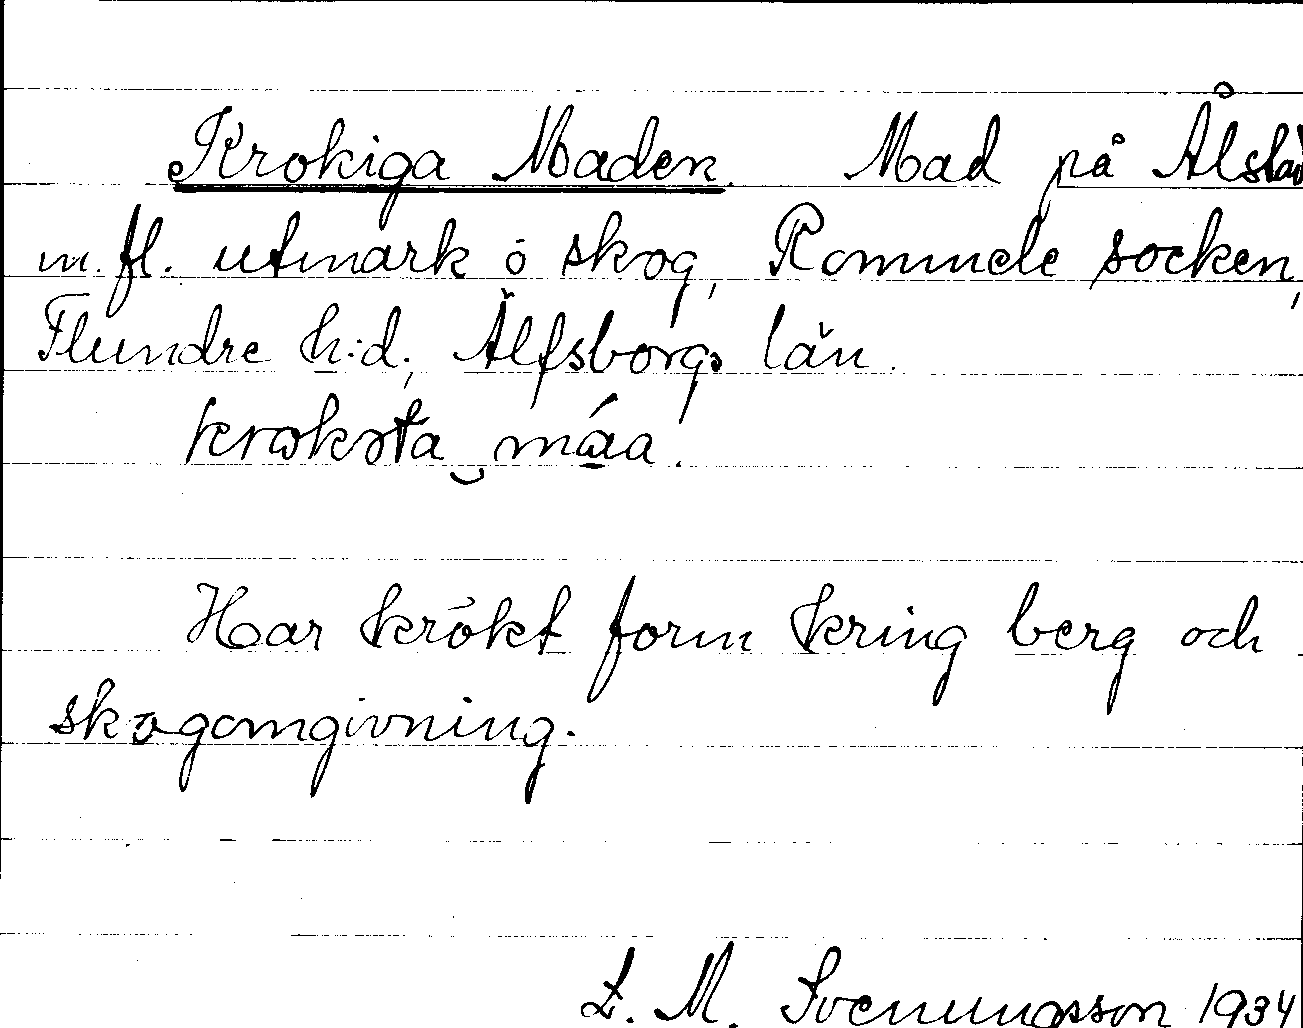 Krokiga Maden. Mad på
m. fl. utmark o skog, Rommele socken,
Flundre h:d, Älfsborgs län.
Har krökt form kring berg och
skogomgivning.
M. Svenungsson 1934